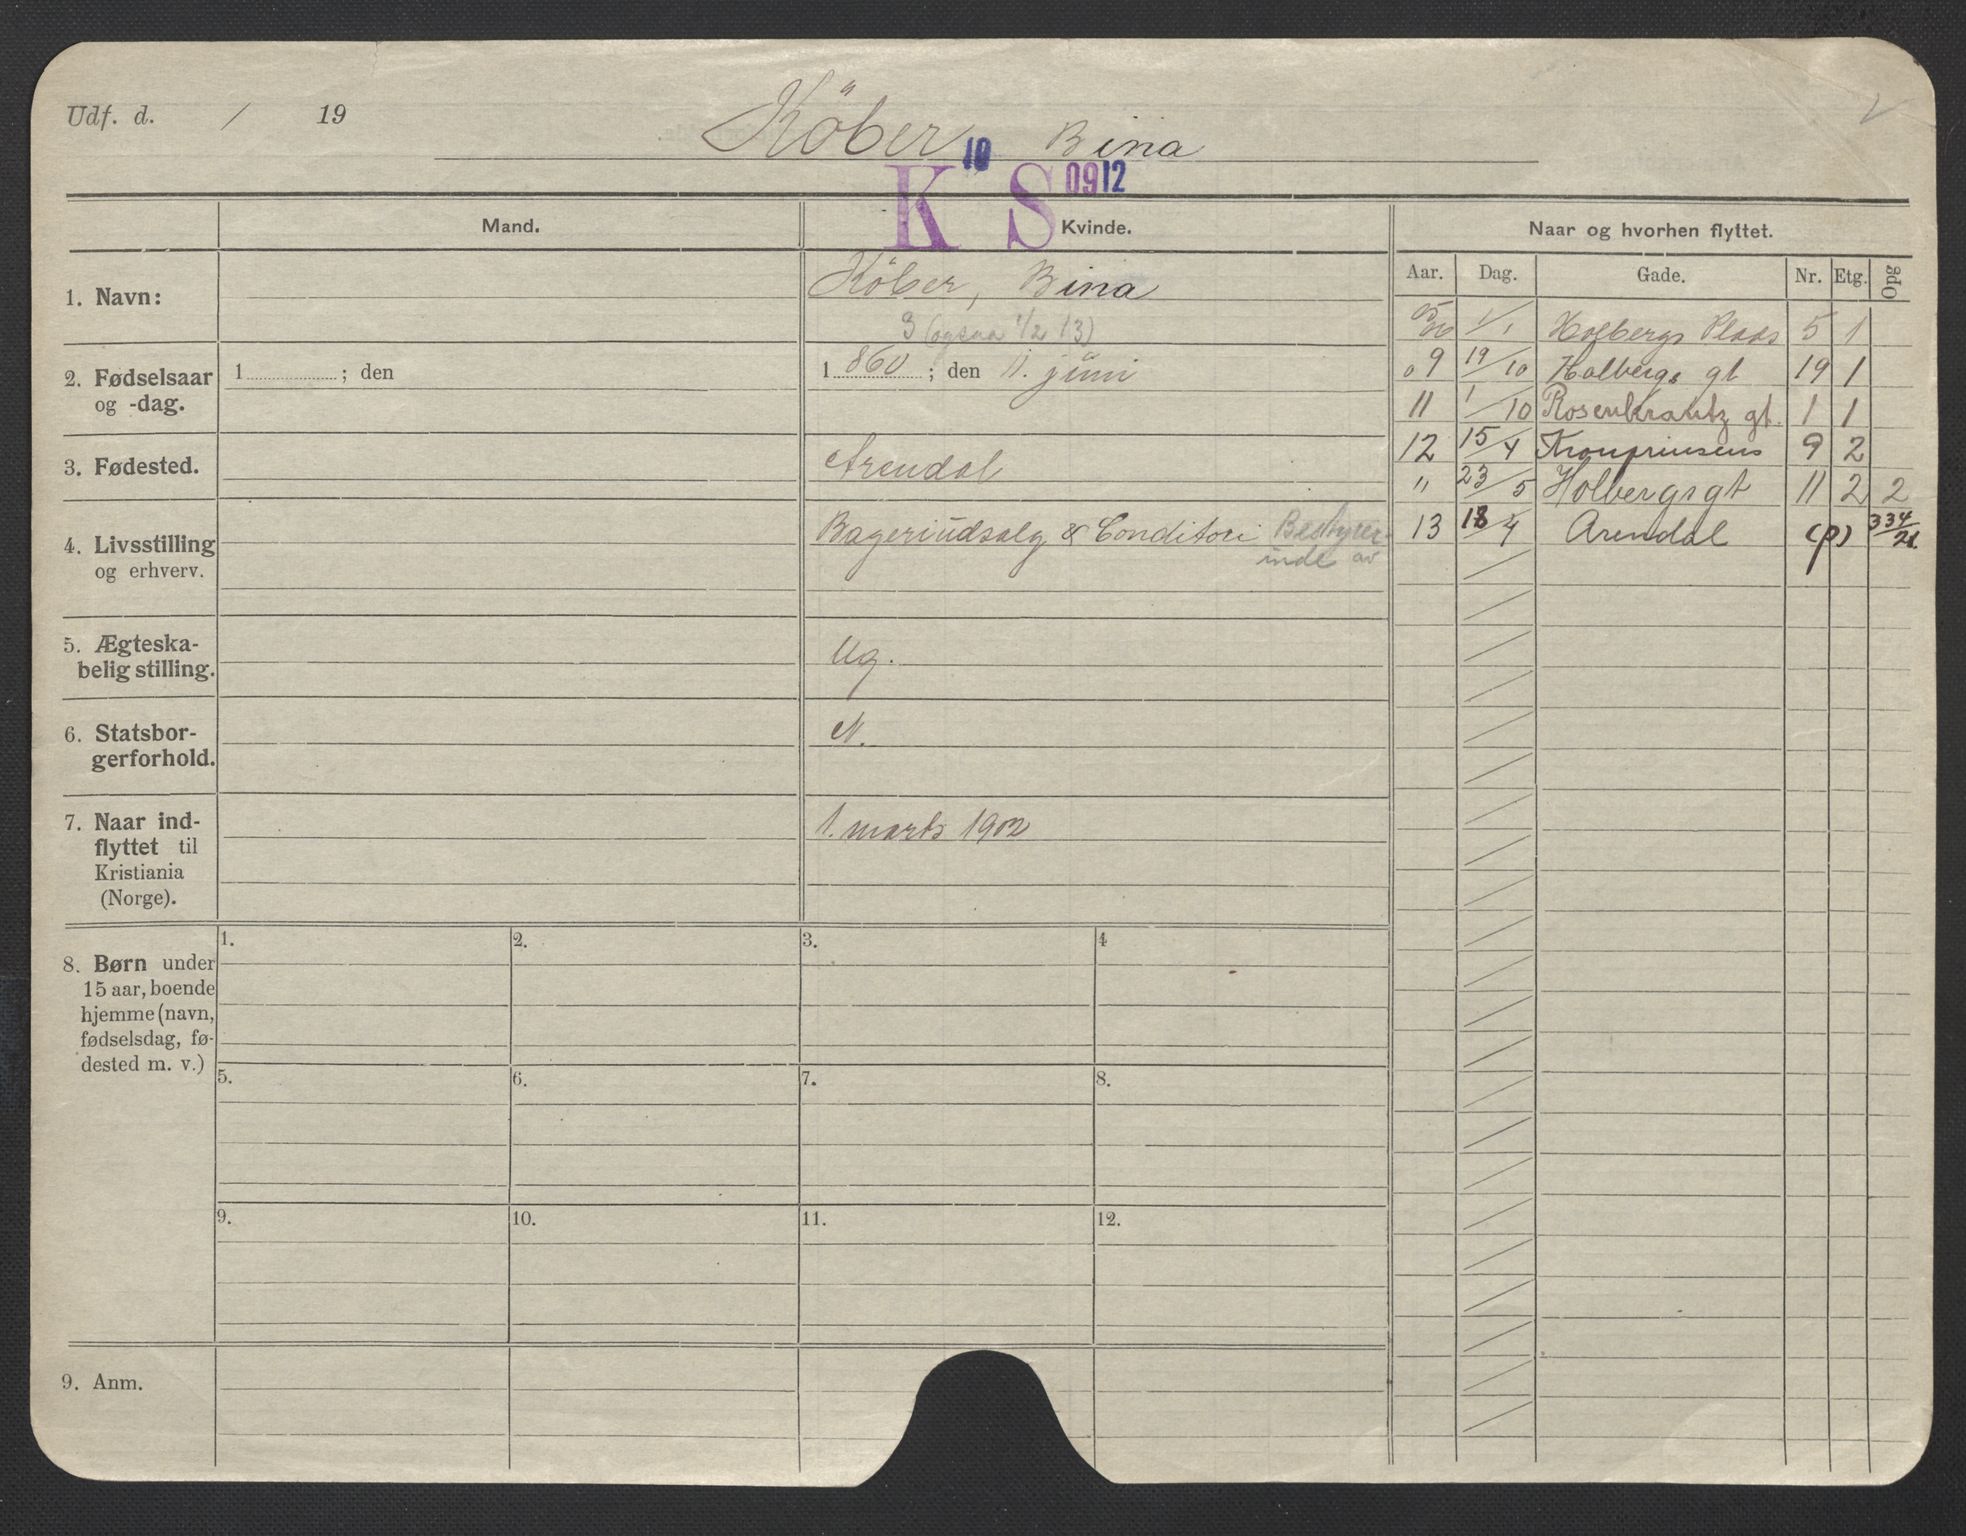 Udf. d. / 19
Köber, Bina
10
K S 0912
Mand. Kvinde. Naar og hvorhen flyttet.
Aar. Dag. Gade. Nr. Etg. Opg
1. Navn: Köber, Bina
3 (ogsaa 1/2 13)
2. Fødselsaar og -dag. 1 ; den 1 860 ; den 11. juni
3. Fødested. Arendal
4. Livsstilling og erhverv. Bageriudsalg & Conditori Bestyrer-
inde av
5. Ægteska-
belig stilling. Ug.
6. Statsbor-
gerforhold. N.
7. Naar ind-
flyttet til
Kristiania
(Norge). 1. marts 1902
8. Børn under
15 aar, boende
hjemme (navn,
fødselsdag, fø-
dested m. v.)
1. 2. 3. 4
5. 6. 7. 8.
9. 10. 11. 12.
9. Anm.
1/1 Holbergs Plads 5 1
09 19/10 Holbergs gt 19 1
11 1/10 Rosenkrantz gt. 1 1
12 15/4 Kronprinsens 9 2
" 23/5 Holbergs gt 11 2 2
13 18/4 Arendal (p) 334/21.